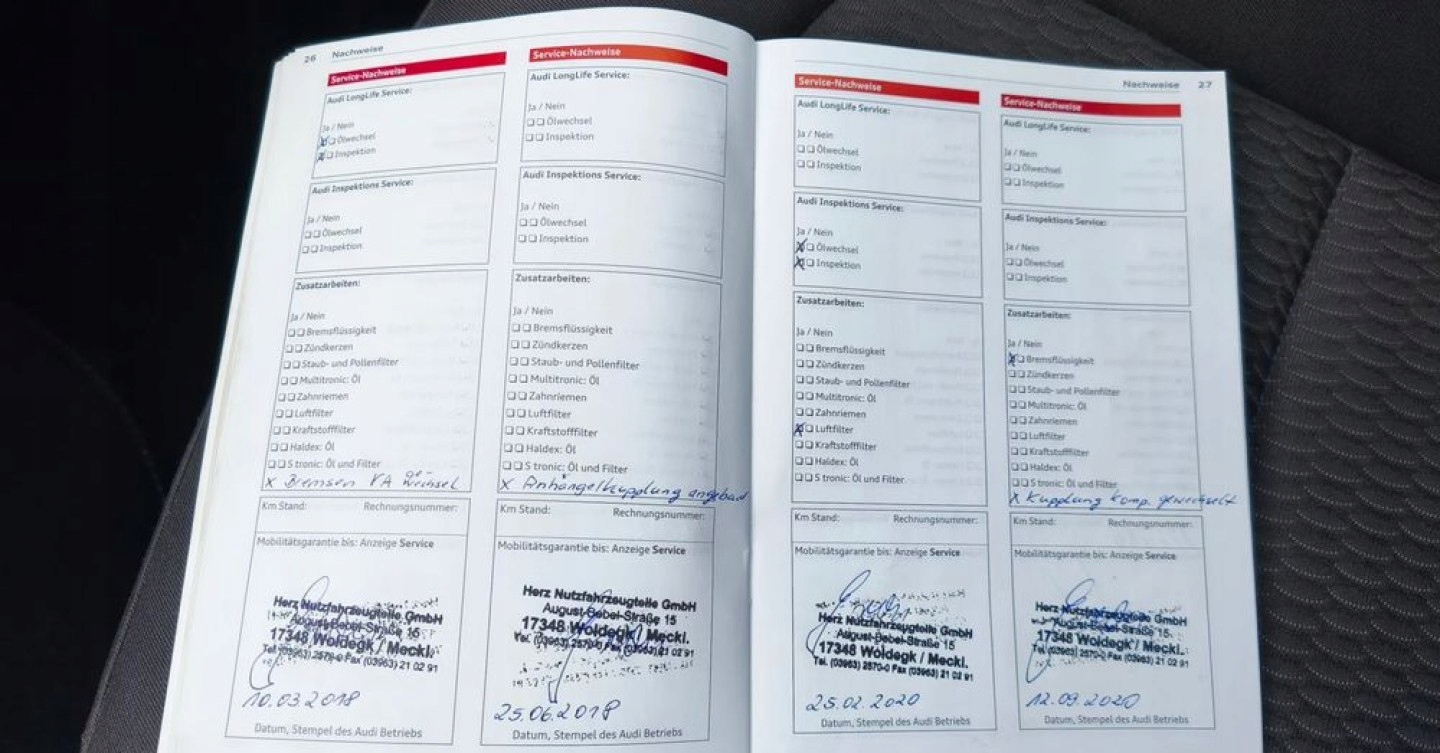 26 Nachweise
Service-Nachweise
Audi LongLife Service:
Ja / Nein
Ölwechsel
Inspektion
Audi Inspektions Service:
Ja / Nein
Ölwechsel
Inspektion
Zusatzarbeiten:
Ja / Nein
Bremsflüssigkeit
Zündkerzen
Staub- und Pollenfilter
Multitronic: Öl
Zahnriemen
Luftfilter
Kraftstofffilter
Haldex: Öl
S tronic: Öl und Filter
x Bremsen VA gewechsel
Km Stand: Rechnungsnummer:
Mobilitätsgarantie bis: Anzeige Service
Herz Nutzfahrzeugteile GmbH
August-Bebel-Straße 15
17348 Woldegk / Meckl.
Tel. (03963) 2570-0 Fax (03963) 21 02 91
10.03.2018
Datum, Stempel des Audi Betriebs
Service-Nachweise
Audi LongLife Service:
Ja / Nein
Ölwechsel
Inspektion
Audi Inspektions Service:
Ja / Nein
Ölwechsel
Inspektion
Zusatzarbeiten:
Ja / Nein
Bremsflüssigkeit
Zündkerzen
Staub- und Pollenfilter
Multitronic: Öl
Zahnriemen
Luftfilter
Kraftstofffilter
Haldex: Öl
S tronic: Öl und Filter
x Anhängelkupplung angebaut
Km Stand: Rechnungsnummer:
Mobilitätsgarantie bis: Anzeige Service
Herz Nutzfahrzeugteile GmbH
August-Bebel-Straße 15
17348 Woldegk / Meckl.
Tel. (03963) 2570-0 Fax (03963) 21 02 91
25.06.2018
Datum, Stempel des Audi Betriebs
Nachweise 27
Service-Nachweise
Audi LongLife Service:
Ja / Nein
Ölwechsel
Inspektion
Audi Inspektions Service:
Ja / Nein
Ölwechsel
Inspektion
Zusatzarbeiten:
Ja / Nein
Bremsflüssigkeit
Zündkerzen
Staub- und Pollenfilter
Multitronic: Öl
Zahnriemen
Luftfilter
Kraftstofffilter
Haldex: Öl
S tronic: Öl und Filter
Km Stand: Rechnungsnummer:
Mobilitätsgarantie bis: Anzeige Service
Herz Nutzfahrzeugteile GmbH
August-Bebel-Straße 15
17348 Woldegk / Meckl.
Tel. (03963) 2570-0 Fax (03963) 21 02 91
25.02.2020
Datum, Stempel des Audi Betriebs
Service-Nachweise
Audi LongLife Service:
Ja / Nein
Ölwechsel
Inspektion
Audi Inspektions Service:
Ja / Nein
Ölwechsel
Inspektion
Zusatzarbeiten:
Ja / Nein
Bremsflüssigkeit
Zündkerzen
Staub- und Pollenfilter
Multitronic: Öl
Zahnriemen
Luftfilter
Kraftstofffilter
Haldex: Öl
S tronic: Öl und Filter
x Kupplung komp. gewechselt
Km Stand: Rechnungsnummer:
Mobilitätsgarantie bis: Anzeige Service
Herz Nutzfahrzeugteile GmbH
August-Bebel-Straße 15
17348 Woldegk / Meckl.
Tel. (03963) 2570-0 Fax (03963) 21 02 91
12.09.2020
Datum, Stempel des Audi Betriebs